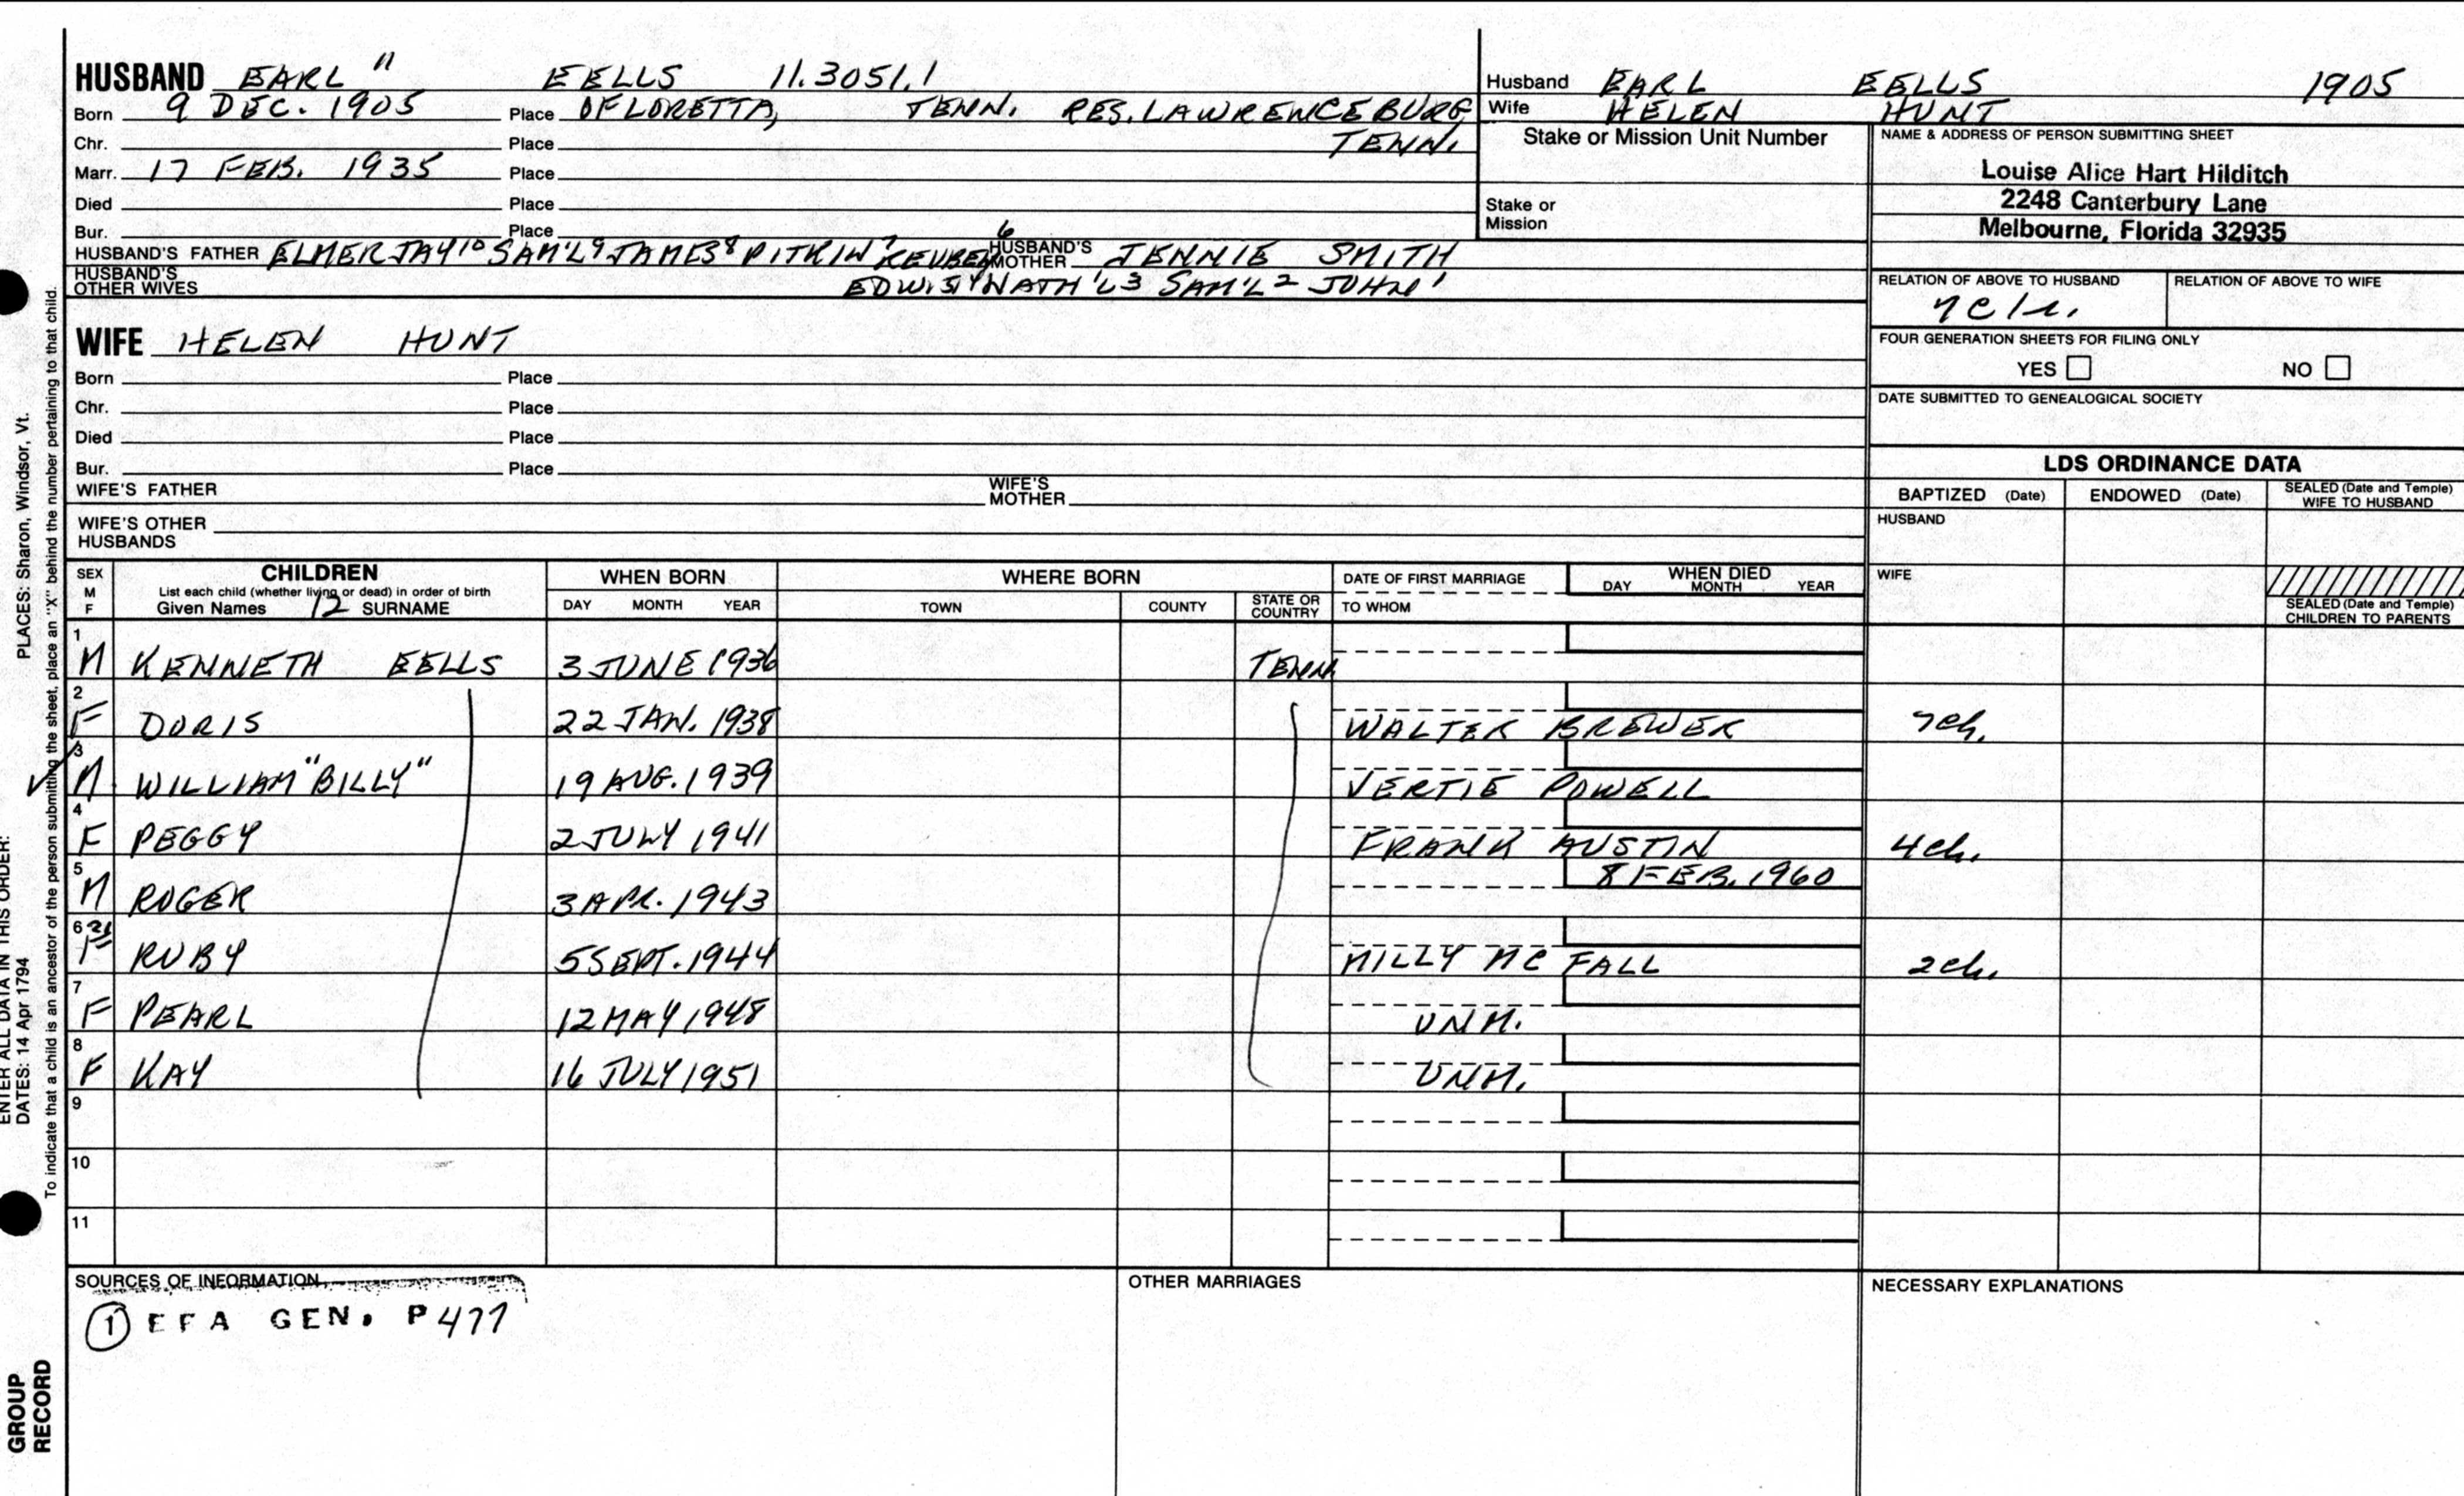 HUSBAND EARL 11 EELLS 11.3051.1
Born 9 DEC. 1905 Place OF LORETTA, TENN. RES. LAWRENCEBURG
TENN.
Chr. Place
Marr. 17 FEB. 1935 Place
Died Place
Bur. Place
HUSBAND'S FATHER ELMER JAY10 SAM'L9 JAMES8 PITKIN7 REUBEN6 HUSBAND'S MOTHER JENNIE SMITH
HUSBAND'S OTHER WIVES EDW.5 NATH'L3 SAM'L2 JOHN1
Husband EARL EELLS 1905
Wife HELEN HUNT
Stake or Mission Unit Number
Stake or
Mission
NAME & ADDRESS OF PERSON SUBMITTING SHEET
Louise Alice Hart Hilditch
2248 Canterbury Lane
Melbourne, Florida 32935
RELATION OF ABOVE TO HUSBAND RELATION OF ABOVE TO WIFE
FOUR GENERATION SHEETS FOR FILING ONLY
YES NO
DATE SUBMITTED TO GENEALOGICAL SOCIETY
WIFE HELEN HUNT
Born Place
Chr. Place
Died Place
Bur. Place
WIFE'S FATHER WIFE'S MOTHER
WIFE'S OTHER
HUSBANDS
LDS ORDINANCE DATA
BAPTIZED (Date) ENDOWED (Date) SEALED (Date and Temple) WIFE TO HUSBAND
HUSBAND
WIFE
SEALED (Date and Temple)
CHILDREN TO PARENTS
SEX M F CHILDREN WHEN BORN WHERE BORN DATE OF FIRST MARRIAGE WHEN DIED
List each child (whether living or dead) in order of birth
Given Names 12 SURNAME DAY MONTH YEAR TOWN COUNTY STATE OR COUNTRY TO WHOM DAY MONTH YEAR
1 M KENNETH EELLS 3 JUNE 1936 TENN.
2 F DORIS 22 JAN. 1938 WALTER BREWER 7ch.
3 M WILLIAM "BILLY" 19 AUG. 1939 VERTIE POWELL
4 F PEGGY 2 JULY 1941 FRANK AUSTIN 4ch.
5 M ROGER 3 APR. 1943 8 FEB. 1960
6 F RUBY 5 SEPT. 1944 MILLY MC FALL 2ch.
7 F PEARL 12 MAY 1948 UNM.
8 F KAY 16 JULY 1951 UNM.
9
10
11
SOURCES OF INFORMATION
1 EFA GEN. P 477
OTHER MARRIAGES
NECESSARY EXPLANATIONS
PLACES: Sharon, Windsor, Vt.
To indicate that a child is an ancestor of the person submitting the sheet, place an "X" behind the number pertaining to that child.
ENTER ALL DATA IN THIS ORDER:
DATES: 14 Apr 1794
GROUP
RECORD